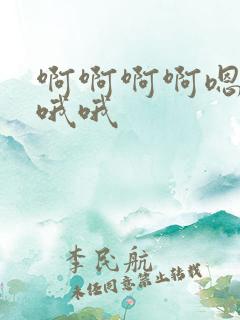 啊啊啊啊嗯
哦哦
李民航
未经同意禁止转载